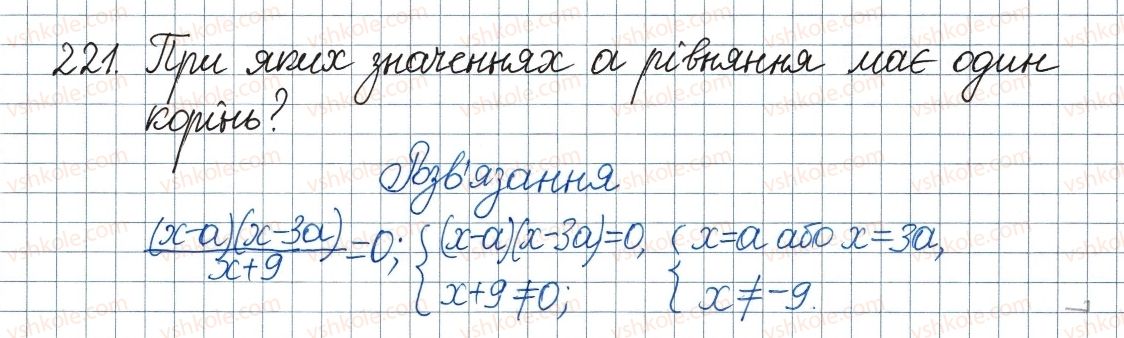 221. При яких значеннях а рівняння має один
корінь?
Розв'язання
(x-a)(x-3a)/x+9 =0; {(x-a)(x-3a)=0, x+9≠0; {x=a або x=3a, x≠-9.